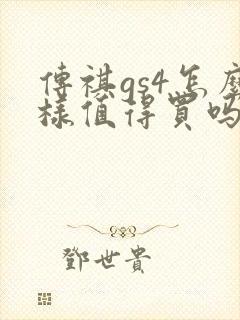 傳祺gs4怎麼
樣值得買嗎
鄧世貴